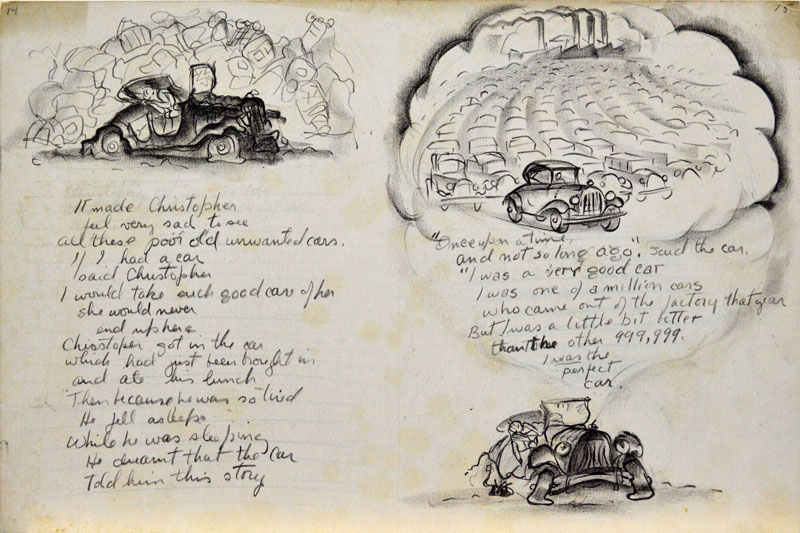 14
It made Christopher
feel very sad to see
all these poor old unwanted cars.
If I had a car
said Christopher
I would take such good care of her
she would never
end up here
Chrostoper got in the car
which had just been brought in
and ate his lunch
Then because he was so tired
He fell asleep
While he was sleeping
He dreamt that the car
Told him this story
15
"Once upon a time,
and not so long ago", said the car.
"I was a very good car
I was one of a million cars
who came out of the factory that year
But I was a little bit better
than the other 999,999.
I was the
perfect
car.